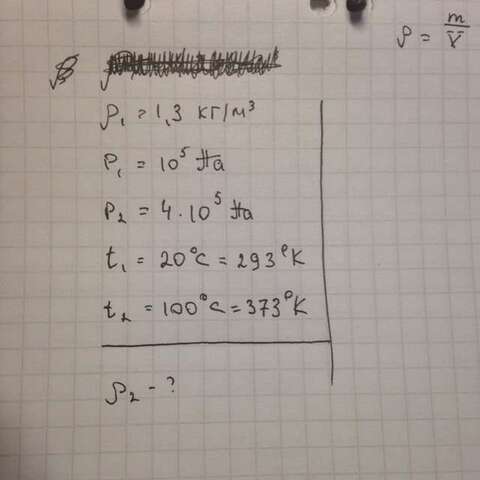 ρ = m/V
ρ₁ = 1,3 кг/м³
P₁ = 10⁵ Па
P₂ = 4·10⁵ Па
t₁ = 20°C = 293°K
t₂ = 100°C = 373°K
ρ₂ - ?